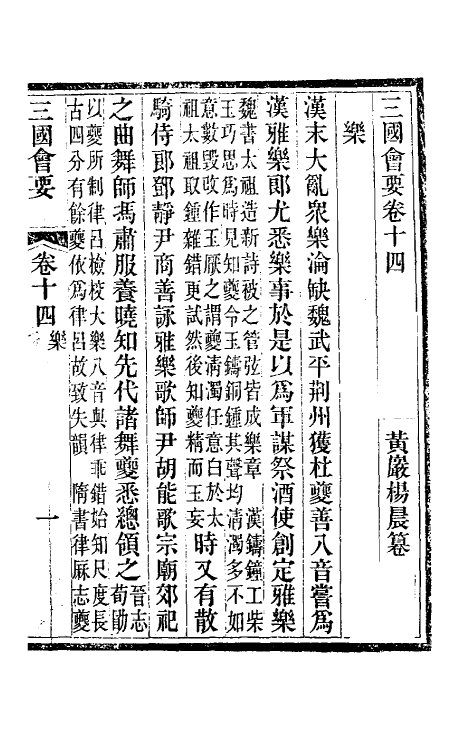 三國會要卷十四
黃巖楊晨纂
樂
漢末大亂眾樂淪缺魏武平荆州獲杜夔善八音嘗為
漢雅樂郎尤悉樂事於是以為軍謀祭酒使創定雅樂
魏書太祖造新詩被之管弦皆成樂章　漢鑄鐘工柴
玉巧思為時見知夔令玉鑄銅鍾其聲均清濁多不如
意數毀改作玉厭之謂夔清濁任意白於太
祖太祖取鍾雜錯更試然後知夔精而玉妄
時又有散
騎侍郎鄧靜尹商善詠雅樂歌師尹胡能歌宗廟郊祀
之曲舞師馮肅服養曉知先代諸舞夔悉總領之
晉志
荀勖
以夔所制律呂檢校大樂八音與律乖錯始知尺度長
古四分有餘夔依為律呂故致失韻　隋書律厤志夔
三國會要
卷十四
樂
一